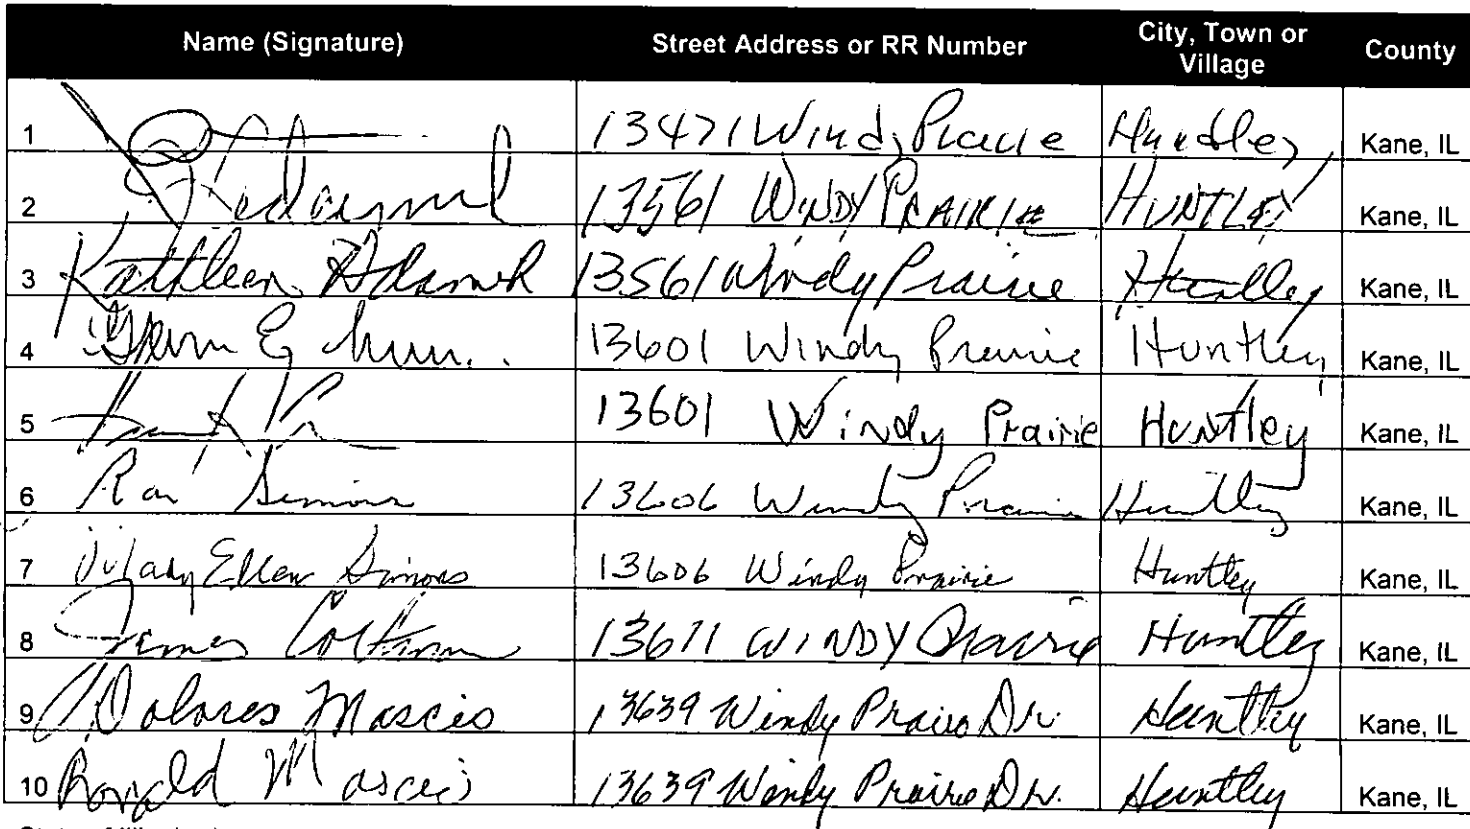 Name (Signature) Street Address or RR Number City, Town or Village County
1 13471 Windy Prairie Huntley Kane, IL
2 13561 WINDY PRAIRIE HUNTLEY Kane, IL
3 Kathleen Adamek 13561 Windy Prairie Huntley Kane, IL
4 13601 Windy Prairie Huntley Kane, IL
5 13601 Windy Prairie Huntley Kane, IL
6 Simons 13606 Windy Prairie Huntley Kane, IL
7 Mary Ellen Simons 13606 Windy Prairie Huntley Kane, IL
8 James 13611 WINDY Prairie Huntley Kane, IL
9 Dolores Mascio 13639 Windy Prairie Dr. Huntley Kane, IL
10 Ronald Mascio 13639 Windy Prairie Dr. Huntley Kane, IL